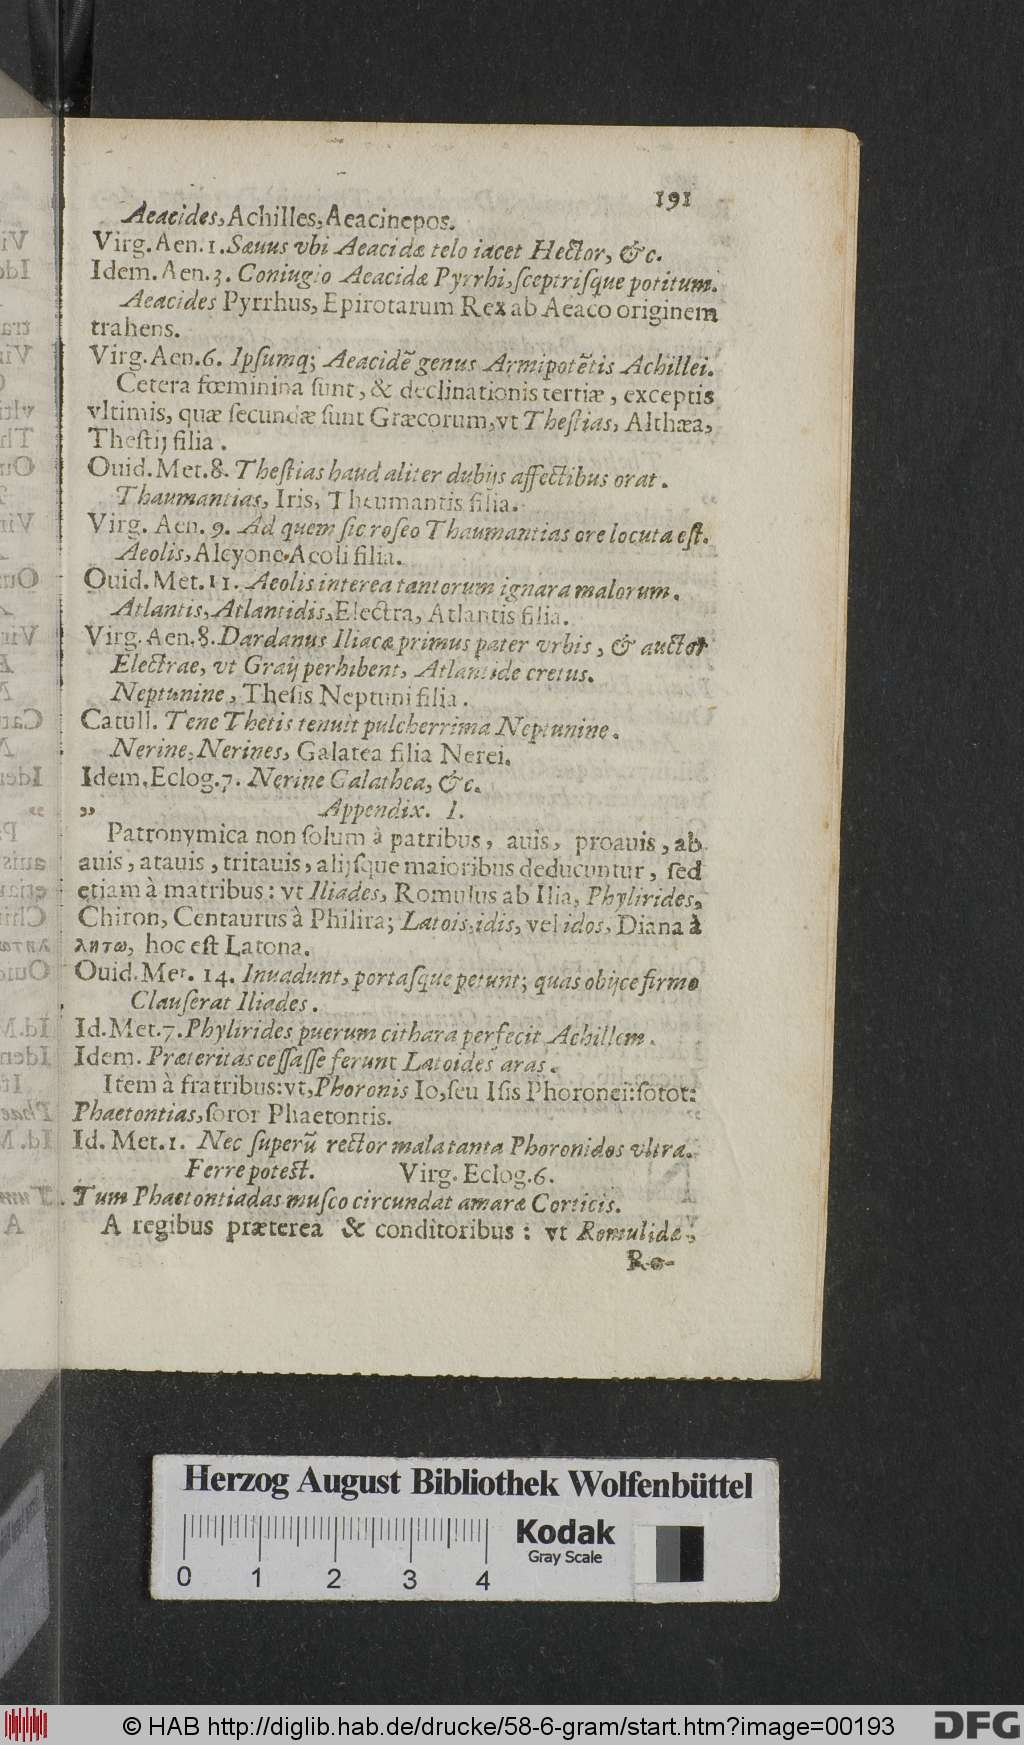 191
Aeacides, Achilles, Aeacinepos.
Virg. Aen. 1. Sæuus vbi Aeacidæ telo iacet Hector, &c.
Idem. Aen. 3. Coniugio Aeacidæ Pyrrhi, sceptrisque potitum.
Aeacides Pyrrhus, Epirotarum Rex ab Aeaco originem
trahens.
Virg. Aen. 6. Ipsumq; Aeacidẽ genus Armipotẽtis Achillei.
Cetera fœminina sunt, & declinationis tertiæ, exceptis
vltimis, quæ secundæ sunt Græcorum, vt Thestias, Althæa,
Thestij filia.
Ouid. Met. 8. Thestias haud aliter dubijs affectibus orat.
Thaumantias, Iris, Theumantis filia.
Virg. Aen. 9. Ad quem sic roseo Thaumantias ore locuta est.
Aeolis, Alcyone Aeoli filia.
Ouid. Met. 11. Aeolis interea tantorum ignara malorum.
Atlantis, Atlantidis, Electra, Atlantis filia.
Virg. Aen. 8. Dardanus Iliacæ primus pater vrbis, & auctor
Electrae, vt Graij perhibent, Atlantide cretus.
Neptunine, Thesis Neptuni filia.
Catull. Tene Thetis tenuit pulcherrima Neptunine.
Nerine, Nerines, Galatea filia Nerei.
Idem. Eclog. 7. Nerine Galathea, &c.
„ Appendix. I.
Patronymica non solum à patribus, auis, proauis, ab
auis, atauis, tritauis, alijsque maioribus deducuntur, sed
etiam à matribus: vt Iliades, Romulus ab Ilia, Phylirides,
Chiron, Centaurus à Philira; Latois, idis, vel idos, Diana à
λητω, hoc est Latona.
Ouid. Met. 14. Inuadunt, portasque petunt; quas obijce firmo
Clauserat Iliades.
Id. Met. 7. Phylirides puerum cithara perfecit Achillem.
Idem. Præteritas cessasse ferunt Latoides aras.
Item à fratribus: vt, Phoronis Io, seu Isis Phoronei: soror:
Phaetontias, soror Phaetontis.
Id. Met. 1. Nec superũ rector mala tanta Phoronidos vltra.
Ferre potest. Virg. Eclog. 6.
Tum Phaetontiadas musco circundat amaræ Corticis.
A regibus præterea & conditoribus: vt Romulidæ;
Ro-
Herzog August Bibliothek Wolfenbüttel
Kodak
Gray Scale
0 1 2 3 4
© HAB http://diglib.hab.de/drucke/58-6-gram/start.htm?image=00193
DFG